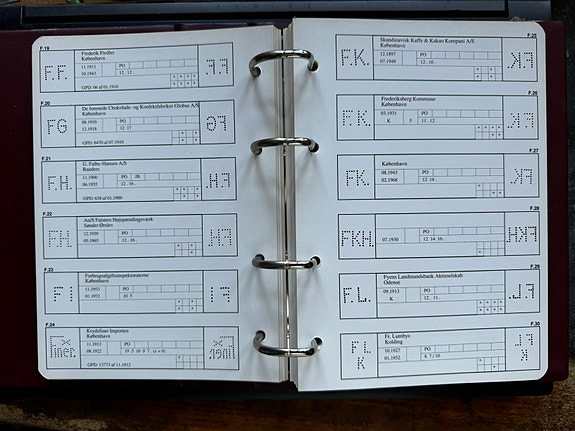 F.19
F.F.
Frederik Fiedler
København
11.1911 PO
10.1943 12. 12.
GPD: 06 af 01.1910
F.20
FG
De forenede Chokolade- og Konfektfabriker Globus A/S
København
08.1910 PO
12.1918 12 17
GPD: 8470 af 07.1910
F.21
F.H.
G. Falbe-Hansen A/S
Randers
01.1900 PO JB
06.1955 12. 16.
GPD: 638 af 01.1900
F.22
F.H.
An/S Falsters Højspændingsværk
Sønder Ørslev
12.1939 PO
03.1963 12. 14.
F.23
FI
Forbrugsafgiftsinspektionerne
København
11.1953 PO
01.1972 10 5
F.24
Fx
iner.
Krydsfiner Importen
København
11.1913 PO
08.1922 10 5 10 9 7 . (x = 9)
GPD: 13773 af 11.1912
F.25
F.K.
Skandinavisk Kaffe & Kakao Kompani A/S
København
12.1897 PO
07.1949 12. 16.
F.26
F.K.
Frederiksberg Kommune
København
03.1931 PO
K 5 11. 12.
F.27
FK.
København
08.1943 PO
02.1968 12 16.
F.28
FKH.
PO
07.1930 12 14 16 .
F.29
F.L.
Fyens Landmandsbank Aktieselskab
Odense
09.1913 PO
K 12. 11.
F.30
FL
K
Fr. Lumbye
Kolding
10.1927 PO
01.1952 K 7 / 10.